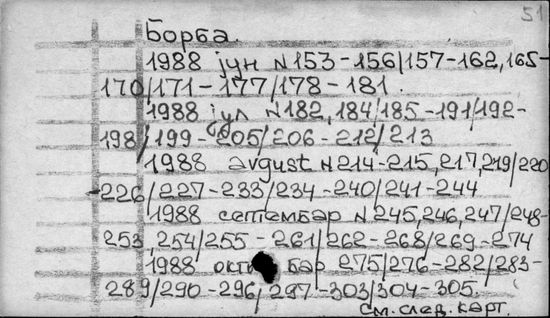 51
Борба.
1988 јун N153-156/157-162,165-
170/171-177/178-181.
1988 јул N182,184/185-191/192-
198/199-205/206-212/213
1988 avgust N214-215,217,219/220
-226/227-233/234-240/241-244
1988 септембар N245,246,247/248-
253,254/255-261/262-268/269-274
1988 окто бар 275/276-282/283-
289/290-296/297-303/304-305.
См.след.карт.